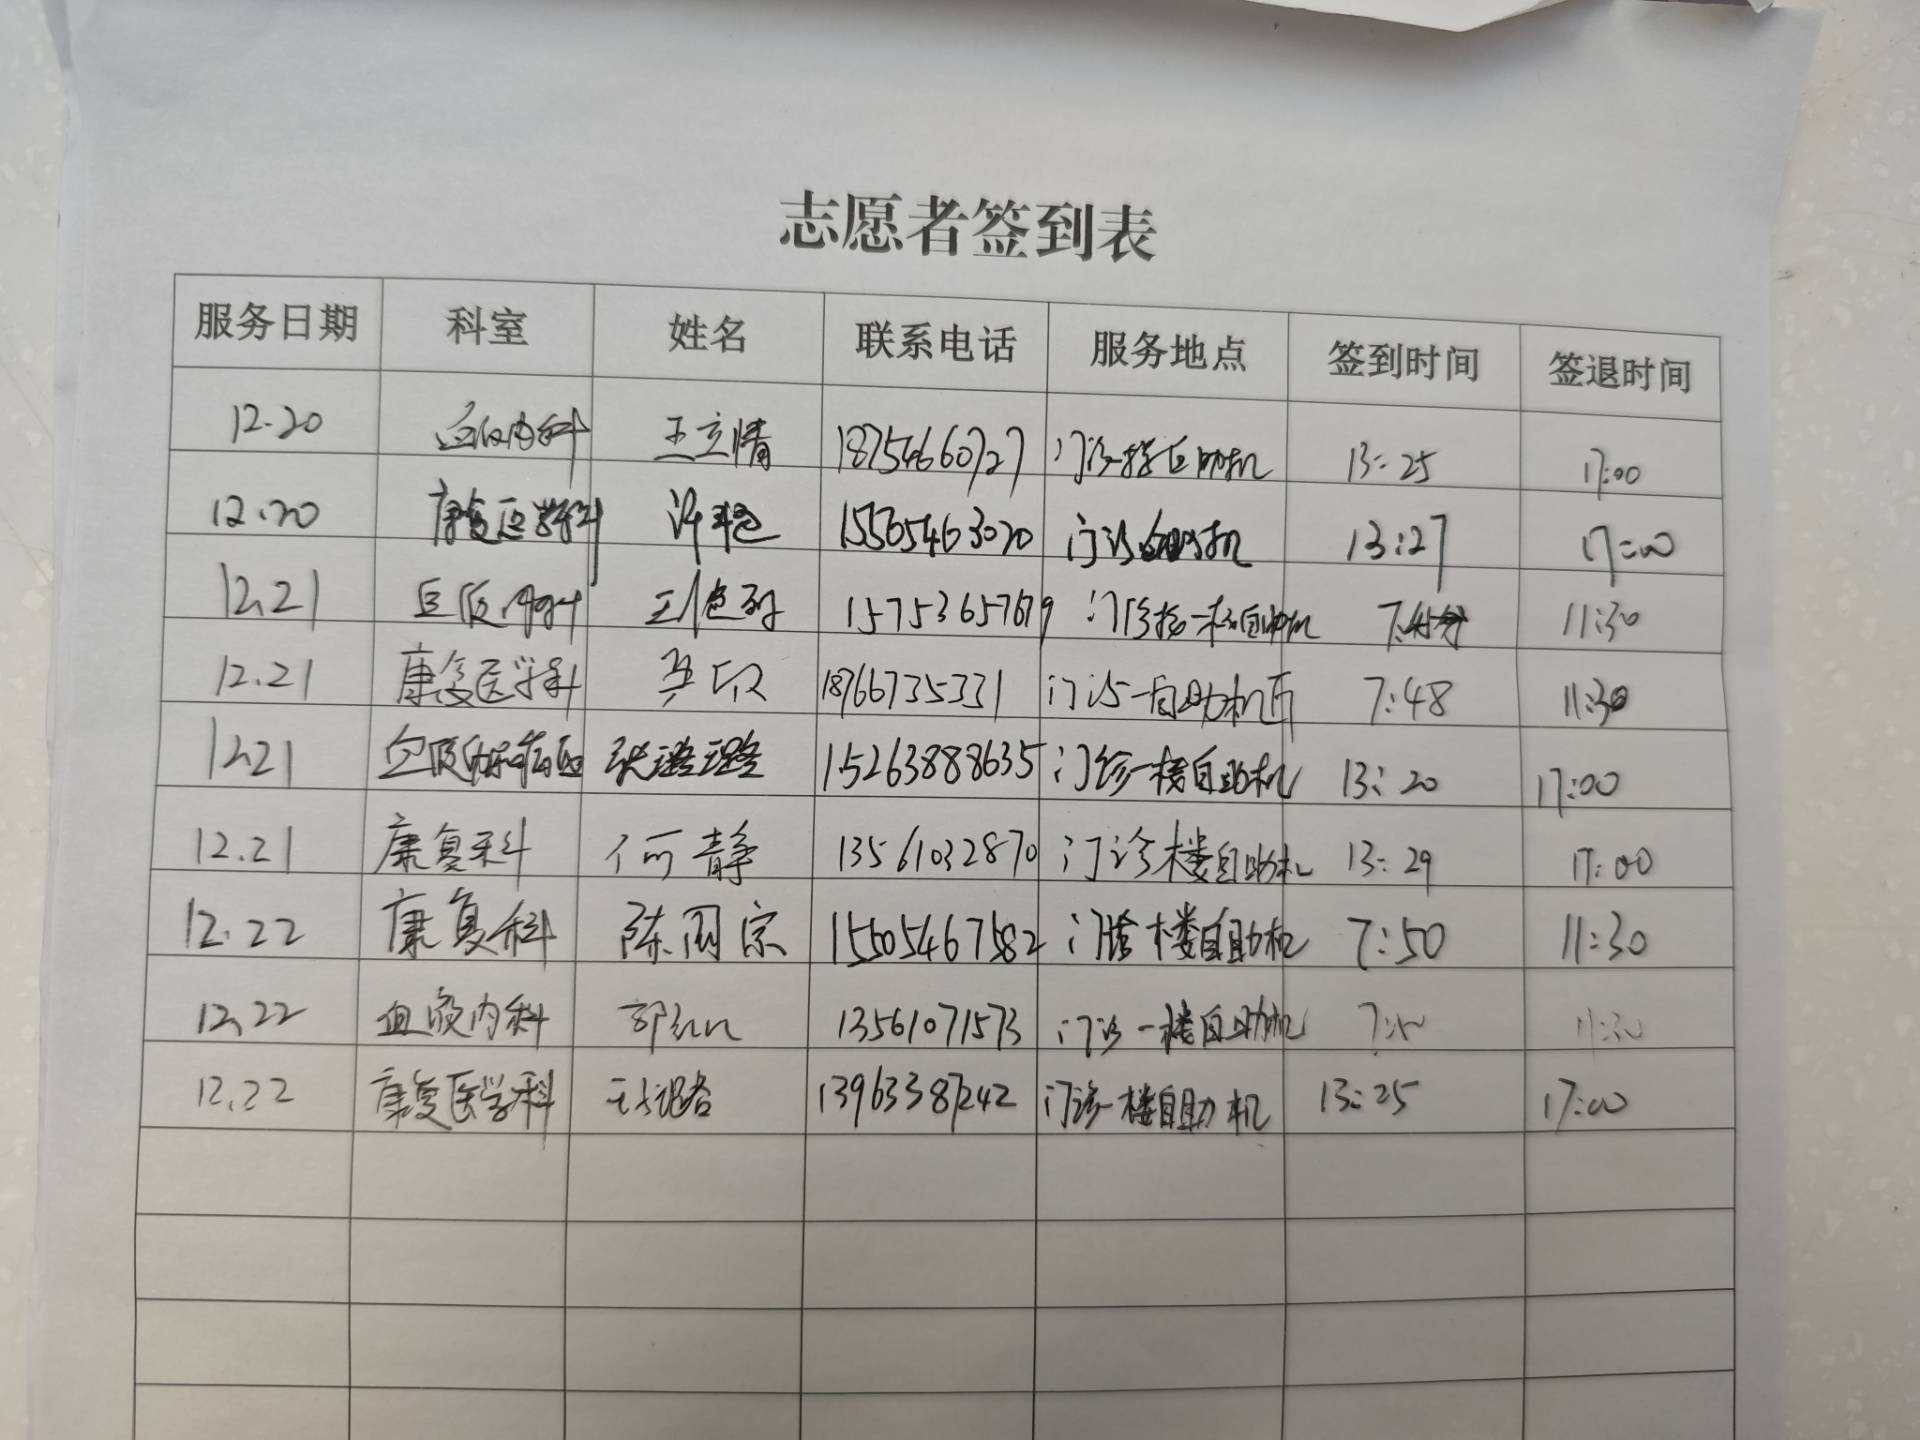 志愿者签到表
服务日期 科室 姓名 联系电话 服务地点 签到时间 签退时间
12.20 血液内科 王立情 18754660727 门诊一楼自助机 13:25 17:00
12.20 康复医学科 15505463020 门诊自助机 13:27 17:00
12.21 血液内科 15753657679 门诊楼一楼自助机 7:45分 11:30
12.21 康复医学科 18766735331 门诊一楼自助机 7:48 11:30
12.21 血液内科病区 张璐璐 15263888635 门诊一楼自助机 13:20 17:00
12.21 康复科 何静 13561032870 门诊楼自助机 13:29 17:00
12.22 康复科 陈同宗 15505467582 门诊楼自助机 7:50 11:30
12.22 血液内科 13561071573 门诊一楼自助机 7:50 11:30
12.22 康复医学科 13963387242 门诊一楼自助机 13:25 17:00